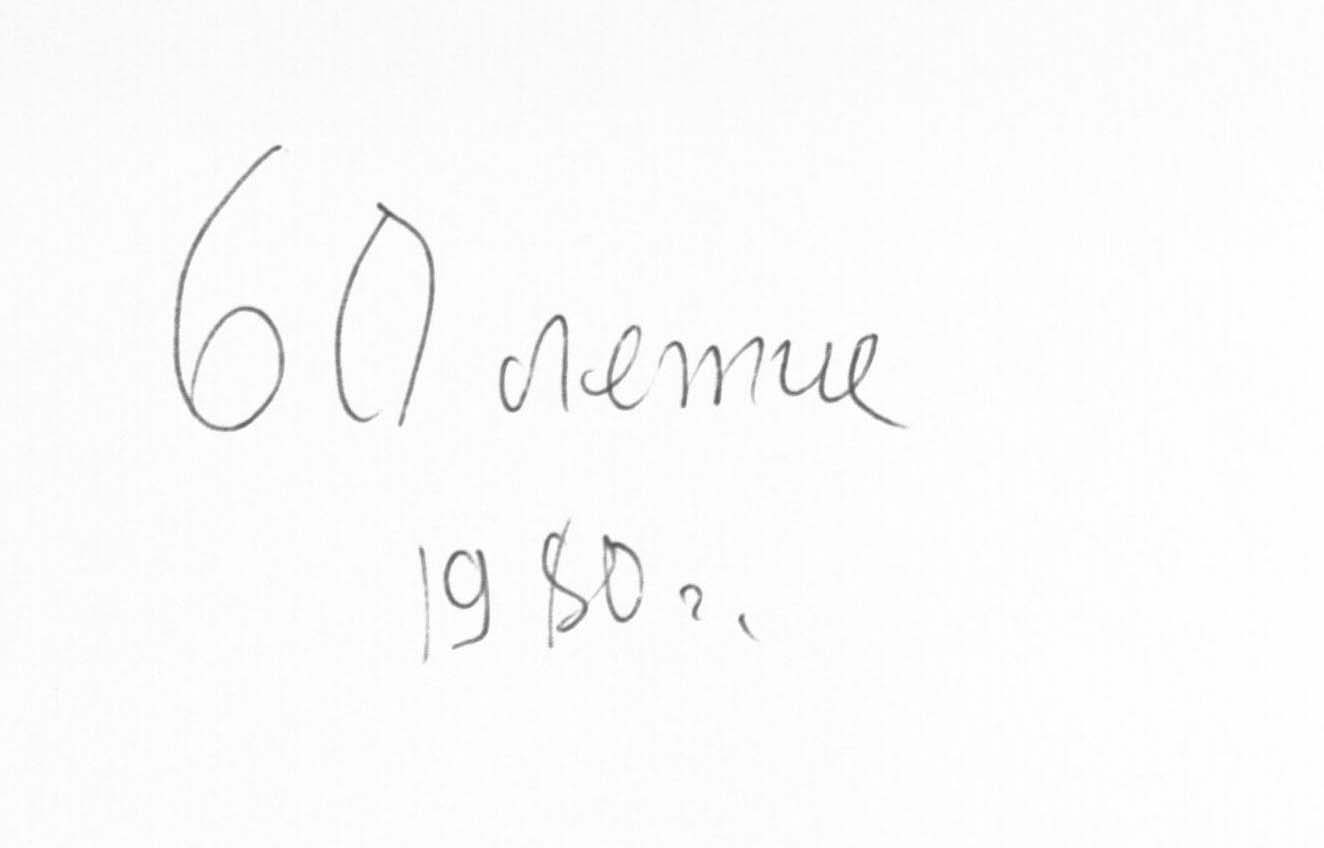 60 летие
1980 г.